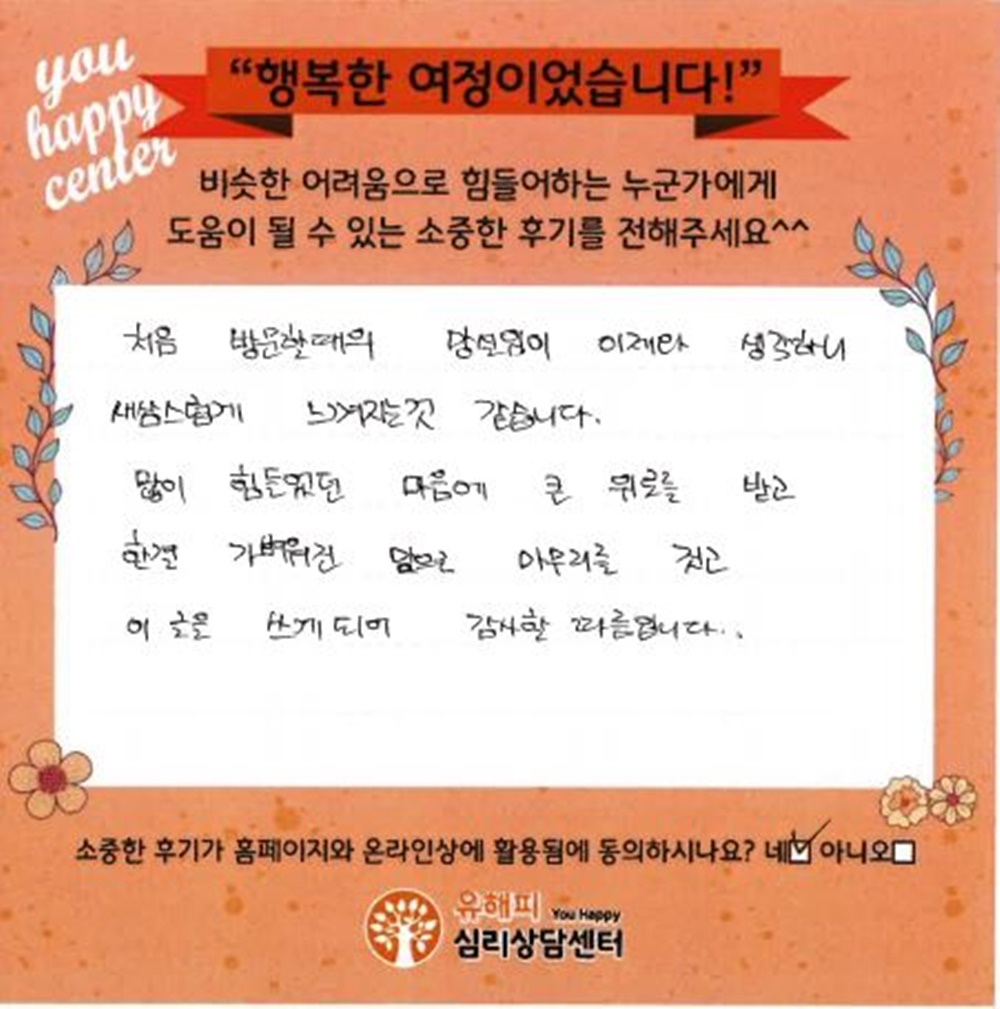 you
happy
center
“행복한 여정이었습니다!”
비슷한 어려움으로 힘들어하는 누군가에게
도움이 될 수 있는 소중한 후기를 전해주세요^^
처음 방문할때의 망설임이 이제와 생각하니
새삼스럽게 느껴지는것 같습니다.
많이 힘들었던 마음에 큰 위로를 받고
한결 가벼워진 맘으로 마무리를 짓고
이 글을 쓰게 되어 감사할 따름입니다..
소중한 후기가 홈페이지와 온라인상에 활용됨에 동의하시나요? 네☑ 아니오☐
유해피 You Happy
심리상담센터